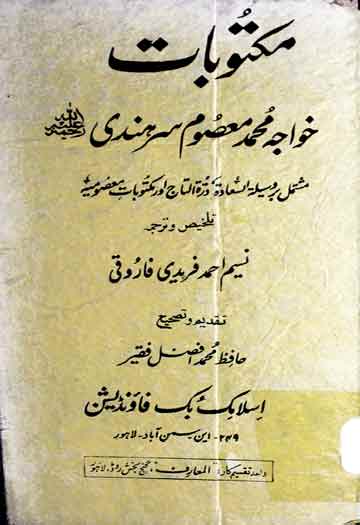 مکتوبات
خواجہ محمد معصوم سرہندی رحمۃ اللہ علیہ
مشتمل بر وسیلۃ السعادۃ، درۃ التاج اور مکتوبات معصومیہ
تلخیص و ترجمہ
نسیم احمد فریدی فاروقی
تقدیم و تصحیح
حافظ محمد افضل فقیر
اسلامک بک فاؤنڈیشن
۲۴۹ - این سمن آباد - لاہور
واحد تقسیم کار: المعارف، گنج بخش روڈ، لاہور